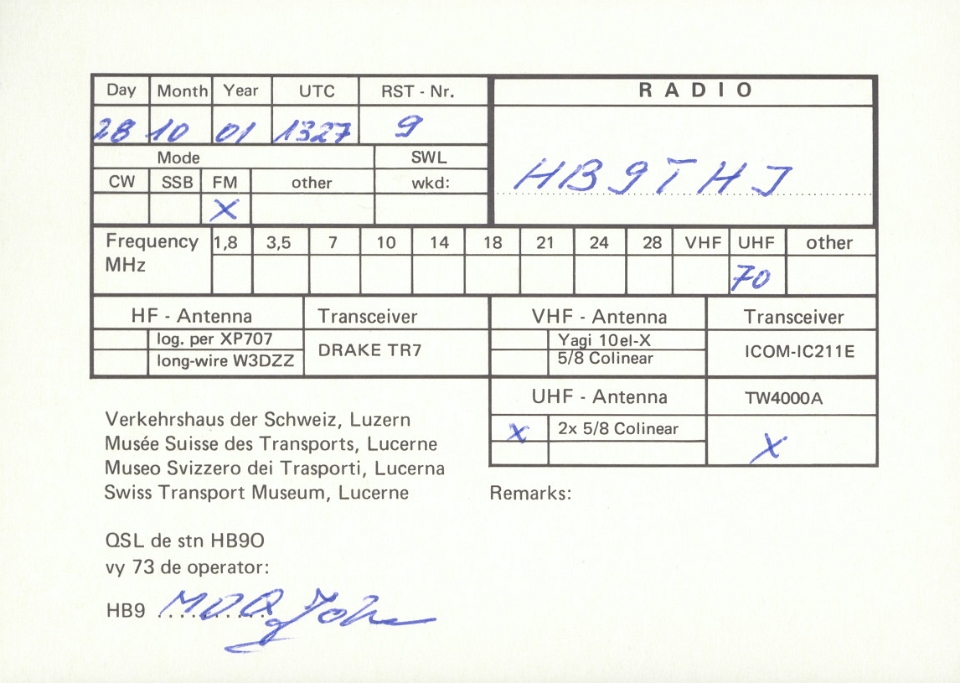 Day Month Year UTC RST - Nr. RADIO
28 10 01 1327 9
HB9THJ
Mode SWL
CW SSB FM other wkd:
X
Frequency MHz 1,8 3,5 7 10 14 18 21 24 28 VHF UHF other
70
HF - Antenna Transceiver VHF - Antenna Transceiver
log. per XP707 DRAKE TR7 Yagi 10el-X ICOM-IC211E
long-wire W3DZZ 5/8 Colinear
UHF - Antenna TW4000A
x 2x 5/8 Colinear X
Verkehrshaus der Schweiz, Luzern
Musée Suisse des Transports, Lucerne
Museo Svizzero dei Trasporti, Lucerna
Swiss Transport Museum, Lucerne
Remarks:
QSL de stn HB9O
vy 73 de operator:
HB9 MOQ John